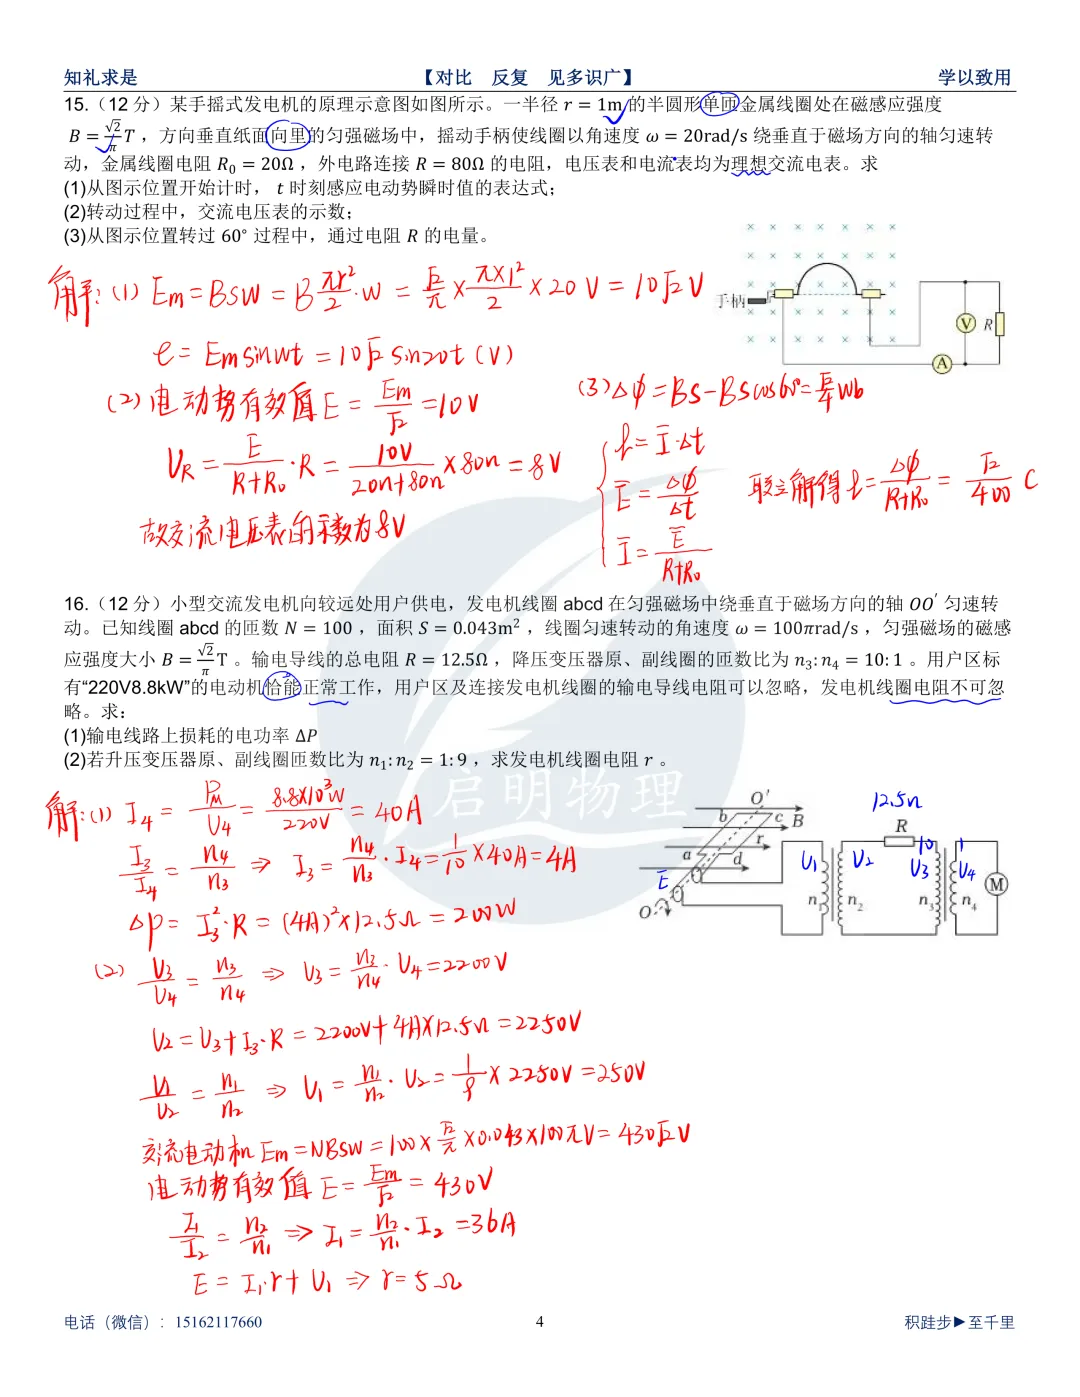 知礼求是 【对比 反复 见多识广】 学以致用
15.（12 分）某手摇式发电机的原理示意图如图所示。一半径 r = 1m 的半圆形单匝金属线圈处在磁感应强度
B = √2/π T ，方向垂直纸面向里的匀强磁场中，摇动手柄使线圈以角速度 ω = 20rad/s 绕垂直于磁场方向的轴匀速转
动，金属线圈电阻 R₀ = 20Ω ，外电路连接 R = 80Ω 的电阻，电压表和电流表均为理想交流电表。求
(1)从图示位置开始计时， t 时刻感应电动势瞬时值的表达式；
(2)转动过程中，交流电压表的示数；
(3)从图示位置转过 60° 过程中，通过电阻 R 的电量。
解：(1) Em = BSω = B πr²/2 · ω = √2/π × π×1²/2 × 20 V = 10√2 V
e = Em sinωt = 10√2 sin20t (V)
(2) 电动势有效值 E = Em/√2 = 10V
U_R = E/(R+R₀) · R = 10V/(20Ω+80Ω) × 80Ω = 8V
故交流电压表的示数为 8V
手柄
V R
A
(3) Δϕ = BS - BScos60° = √2/4 Wb
q = I̅·Δt
E̅ = Δϕ/Δt
I̅ = E̅/(R+R₀)
联立解得 q = Δϕ/(R+R₀) = √2/400 C
16.（12 分）小型交流发电机向较远处用户供电，发电机线圈 abcd 在匀强磁场中绕垂直于磁场方向的轴 OO′ 匀速转
动。已知线圈 abcd 的匝数 N = 100 ，面积 S = 0.043m² ，线圈匀速转动的角速度 ω = 100πrad/s ，匀强磁场的磁感
应强度大小 B = √2/π T 。输电导线的总电阻 R = 12.5Ω ，降压变压器原、副线圈的匝数比为 n₃: n₄ = 10: 1 。用户区标
有“220V8.8kW”的电动机恰能正常工作，用户区及连接发电机线圈的输电导线电阻可以忽略，发电机线圈电阻不可忽
略。求：
(1)输电线路上损耗的电功率 ΔP
(2)若升压变压器原、副线圈匝数比为 n₁: n₂ = 1: 9 ，求发电机线圈电阻 r 。
启明物理
解：(1) I₄ = P_M/U₄ = 8.8×10³W/220V = 40A
I₃/I₄ = n₄/n₃ ⇒ I₃ = n₄/n₃ · I₄ = 1/10 × 40A = 4A
ΔP = I₃²·R = (4A)²×12.5Ω = 200W
(2) U₃/U₄ = n₃/n₄ ⇒ U₃ = n₃/n₄ · U₄ = 2200V
U₂ = U₃ + I₃·R = 2200V + 4A×12.5Ω = 2250V
U₁/U₂ = n₁/n₂ ⇒ U₁ = n₁/n₂ · U₂ = 1/9 × 2250V = 250V
交流电动机 Em = NBSω = 100 × √2/π × 0.043 × 100π V = 430√2 V
电动势有效值 E = Em/√2 = 430V
I₁/I₂ = n₂/n₁ ⇒ I₁ = n₂/n₁ · I₂ = 36A
E = I₁·r + U₁ ⇒ r = 5Ω
12.5Ω
O′
b c B R
r
a d
U₁ U₂ 10 U₃ 1 U₄
E
M
O
n₁ n₂ n₃ n₄
电话（微信）：15162117660 4 积跬步►至千里